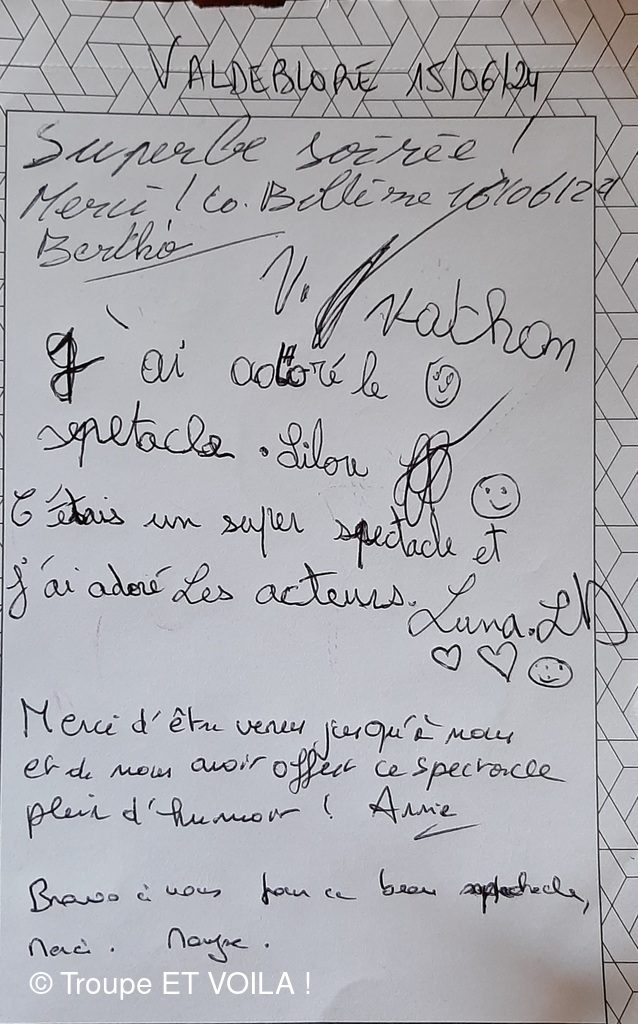 VALDEBLORE 15/06/24
Superbe soirée !
Merci ! Co. 16/06/24
Bertho
V. Nathan
J'ai adoré le
speptacle. Lilou
C'étais un super spectacle et
j'ai adoré Les acteurs.
Luna. LD
Merci d'être venu jusqu'à nous
et de nous avoir offert ce spectacle
plein d'humour ! Annie
Bravo à vous pour ce beau spectacle,
Merci.
© Troupe ET VOILA !